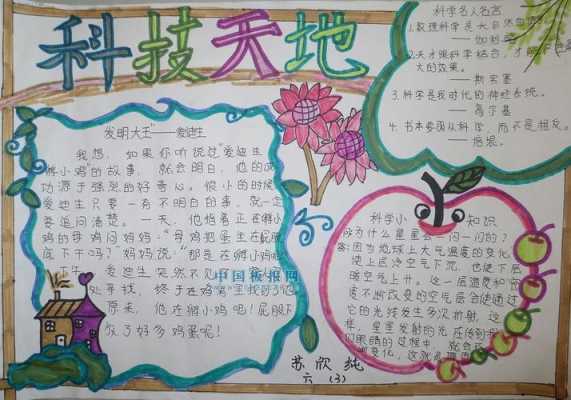 科技天地
发明大王"——爱迪生
我想,如果你听说过"爱迪生
孵小鸡"的故事,就会明白,他的成
功源于强烈的好奇心。很小的时候
爱迪生只要一有不明白的事,就一定
要追问清楚。一天,他指着正在孵小
鸡的母鸡问妈妈:"母鸡把蛋坐在屁股
底下干吗?"妈妈说:"那是在孵小鸡呢
爱迪生突然不见了
处寻找,终于在鸡窝里找到了他
原来,他在孵小鸡呢!屁股下
放了好多鸡蛋呢!
中国板报网
科学名人名言
1.数理科学是大自然
——伽利略
2.天才跟科学结合,才能
大的效果。
——斯宾塞
3.科学是我时代的神经系统。
——高尔基
4.书本要跟从科学,而不是相反。
——培根。
科学小知识
为什么星星会一闪一闪的?
答:因为地球上大气温度的变化,
使上层冷空气下沉,也使下层
暖空气上升。这一层温度和密
度不断改变的空气层会使通过
它的光线发生多次折射,这
样,星星发射的光在传到
们眼睛的过程中,就会
变化,这就
苏欣纯
六(3)